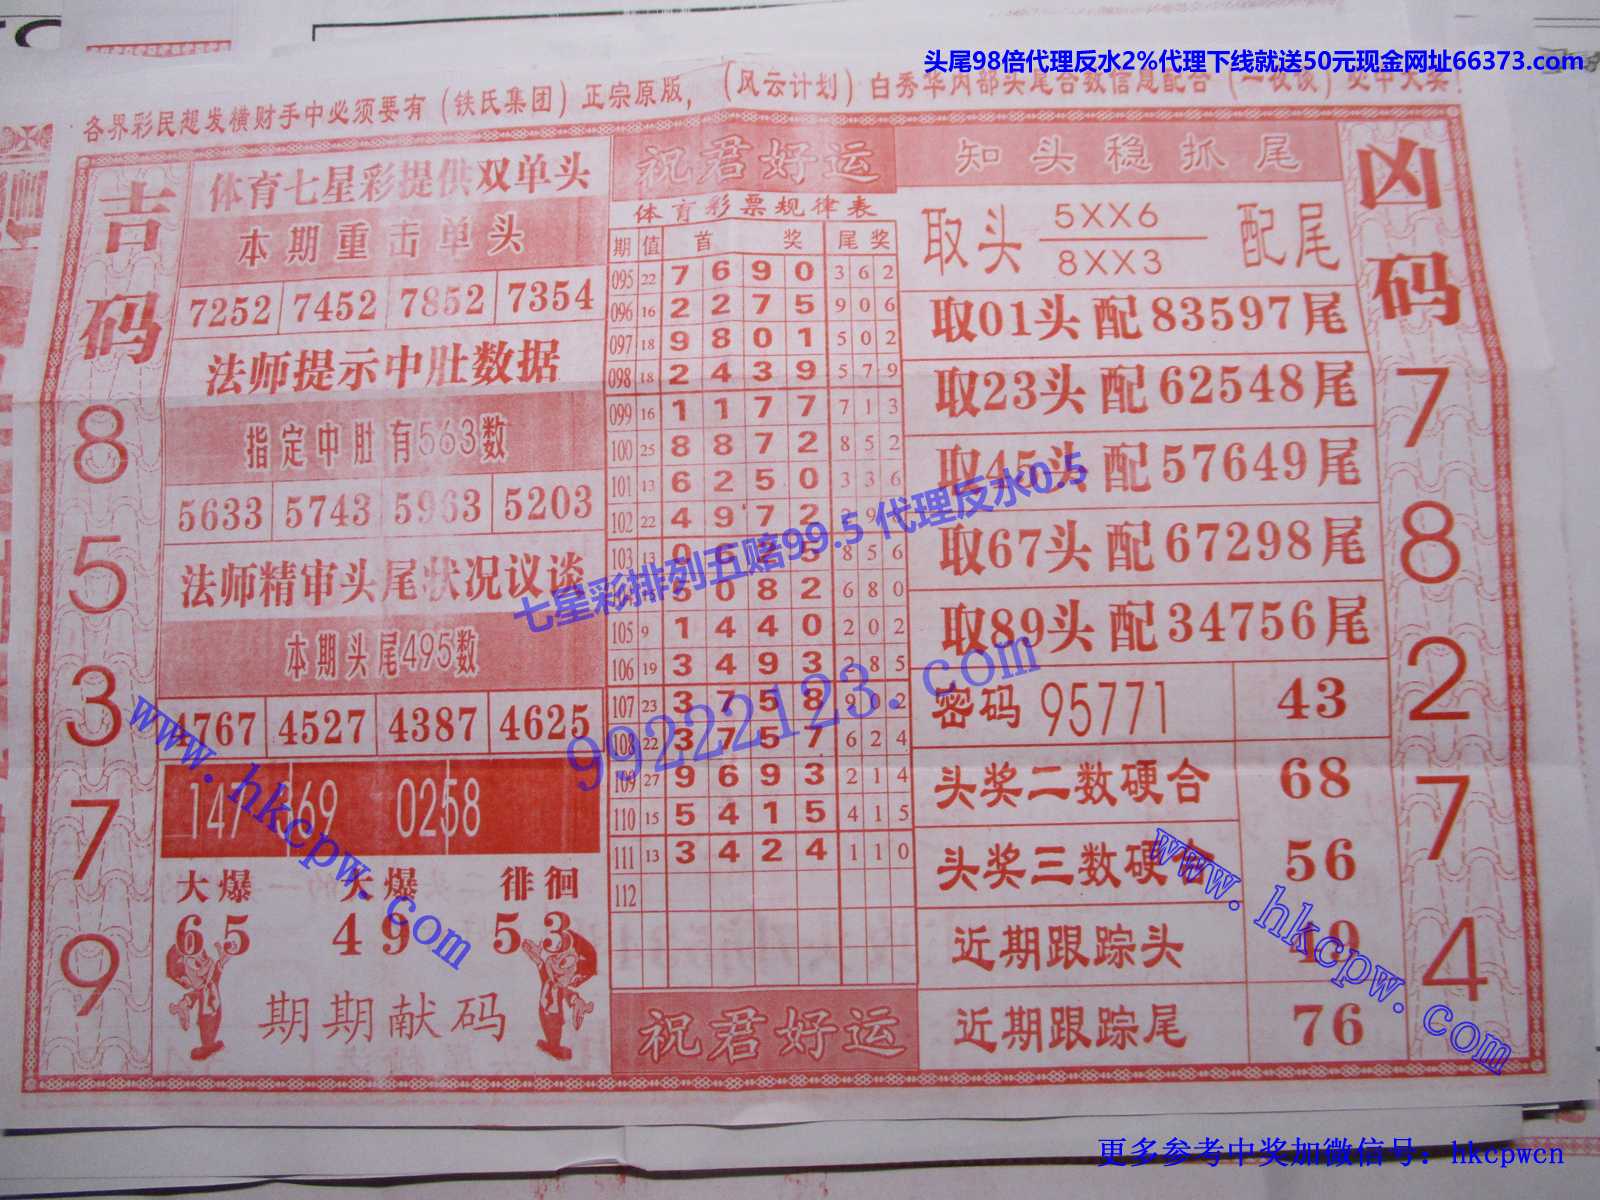 头尾98倍代理反水2%代理下线就送50元现金网址66373.com
各界彩民想发横财手中必须要有(铁氏集团)正宗原版,(风云计划)白秀华内部头尾合数信息配合
吉码
8
5
3
7
9
体育七星彩提供双单头
本期重击单头
7252 7452 7852 7354
法师提示中肚数据
指定中肚有563数
5633 5743 5963 5203
法师精审头尾状况议谈
本期头尾495数
4767 4527 4387 4625
0258
大爆 大爆 徘徊
65 49 53
期期献码
祝君好运
体育彩票规律表
期 值 首 奖 尾 奖
095 22 7 6 9 0 3 6 2
096 16 2 2 7 5 9 0 6
097 18 9 8 0 1 5 0 2
098 18 2 4 3 9 5 7 9
099 16 1 1 7 7 7 1 3
100 25 8 8 7 2 8 5 2
101 13 6 2 5 0 3 3 6
102 22 4 9 7 2
103 13 0 6 2 5 8 5 6
5 0 8 2 6 8 0
105 9 1 4 4 0 2 0 2
106 19 3 4 9 3 2 8 5
107 23 3 7 5 8 9 0 2
108 22 3 7 5 7 6 2 4
109 27 9 6 9 3 2 1 4
110 15 5 4 1 5 4 1 5
111 13 3 4 2 4 1 1 0
112
祝君好运
知头稳抓尾
取头 5XX6 配尾
8XX3
取01头配83597尾
取23头配62548尾
取45头配57649尾
取67头配67298尾
取89头配34756尾
密码 95771 43
头奖二数硬合 68
头奖三数硬合 56
近期跟踪头 49
近期跟踪尾 76
凶码
7
8
2
7
4
七星彩排列五赔99.5 代理反水0.5
99222123.com
www.hkcpw.com
www.hkcpw.com
更多参考中奖加微信号：hkcpwcn